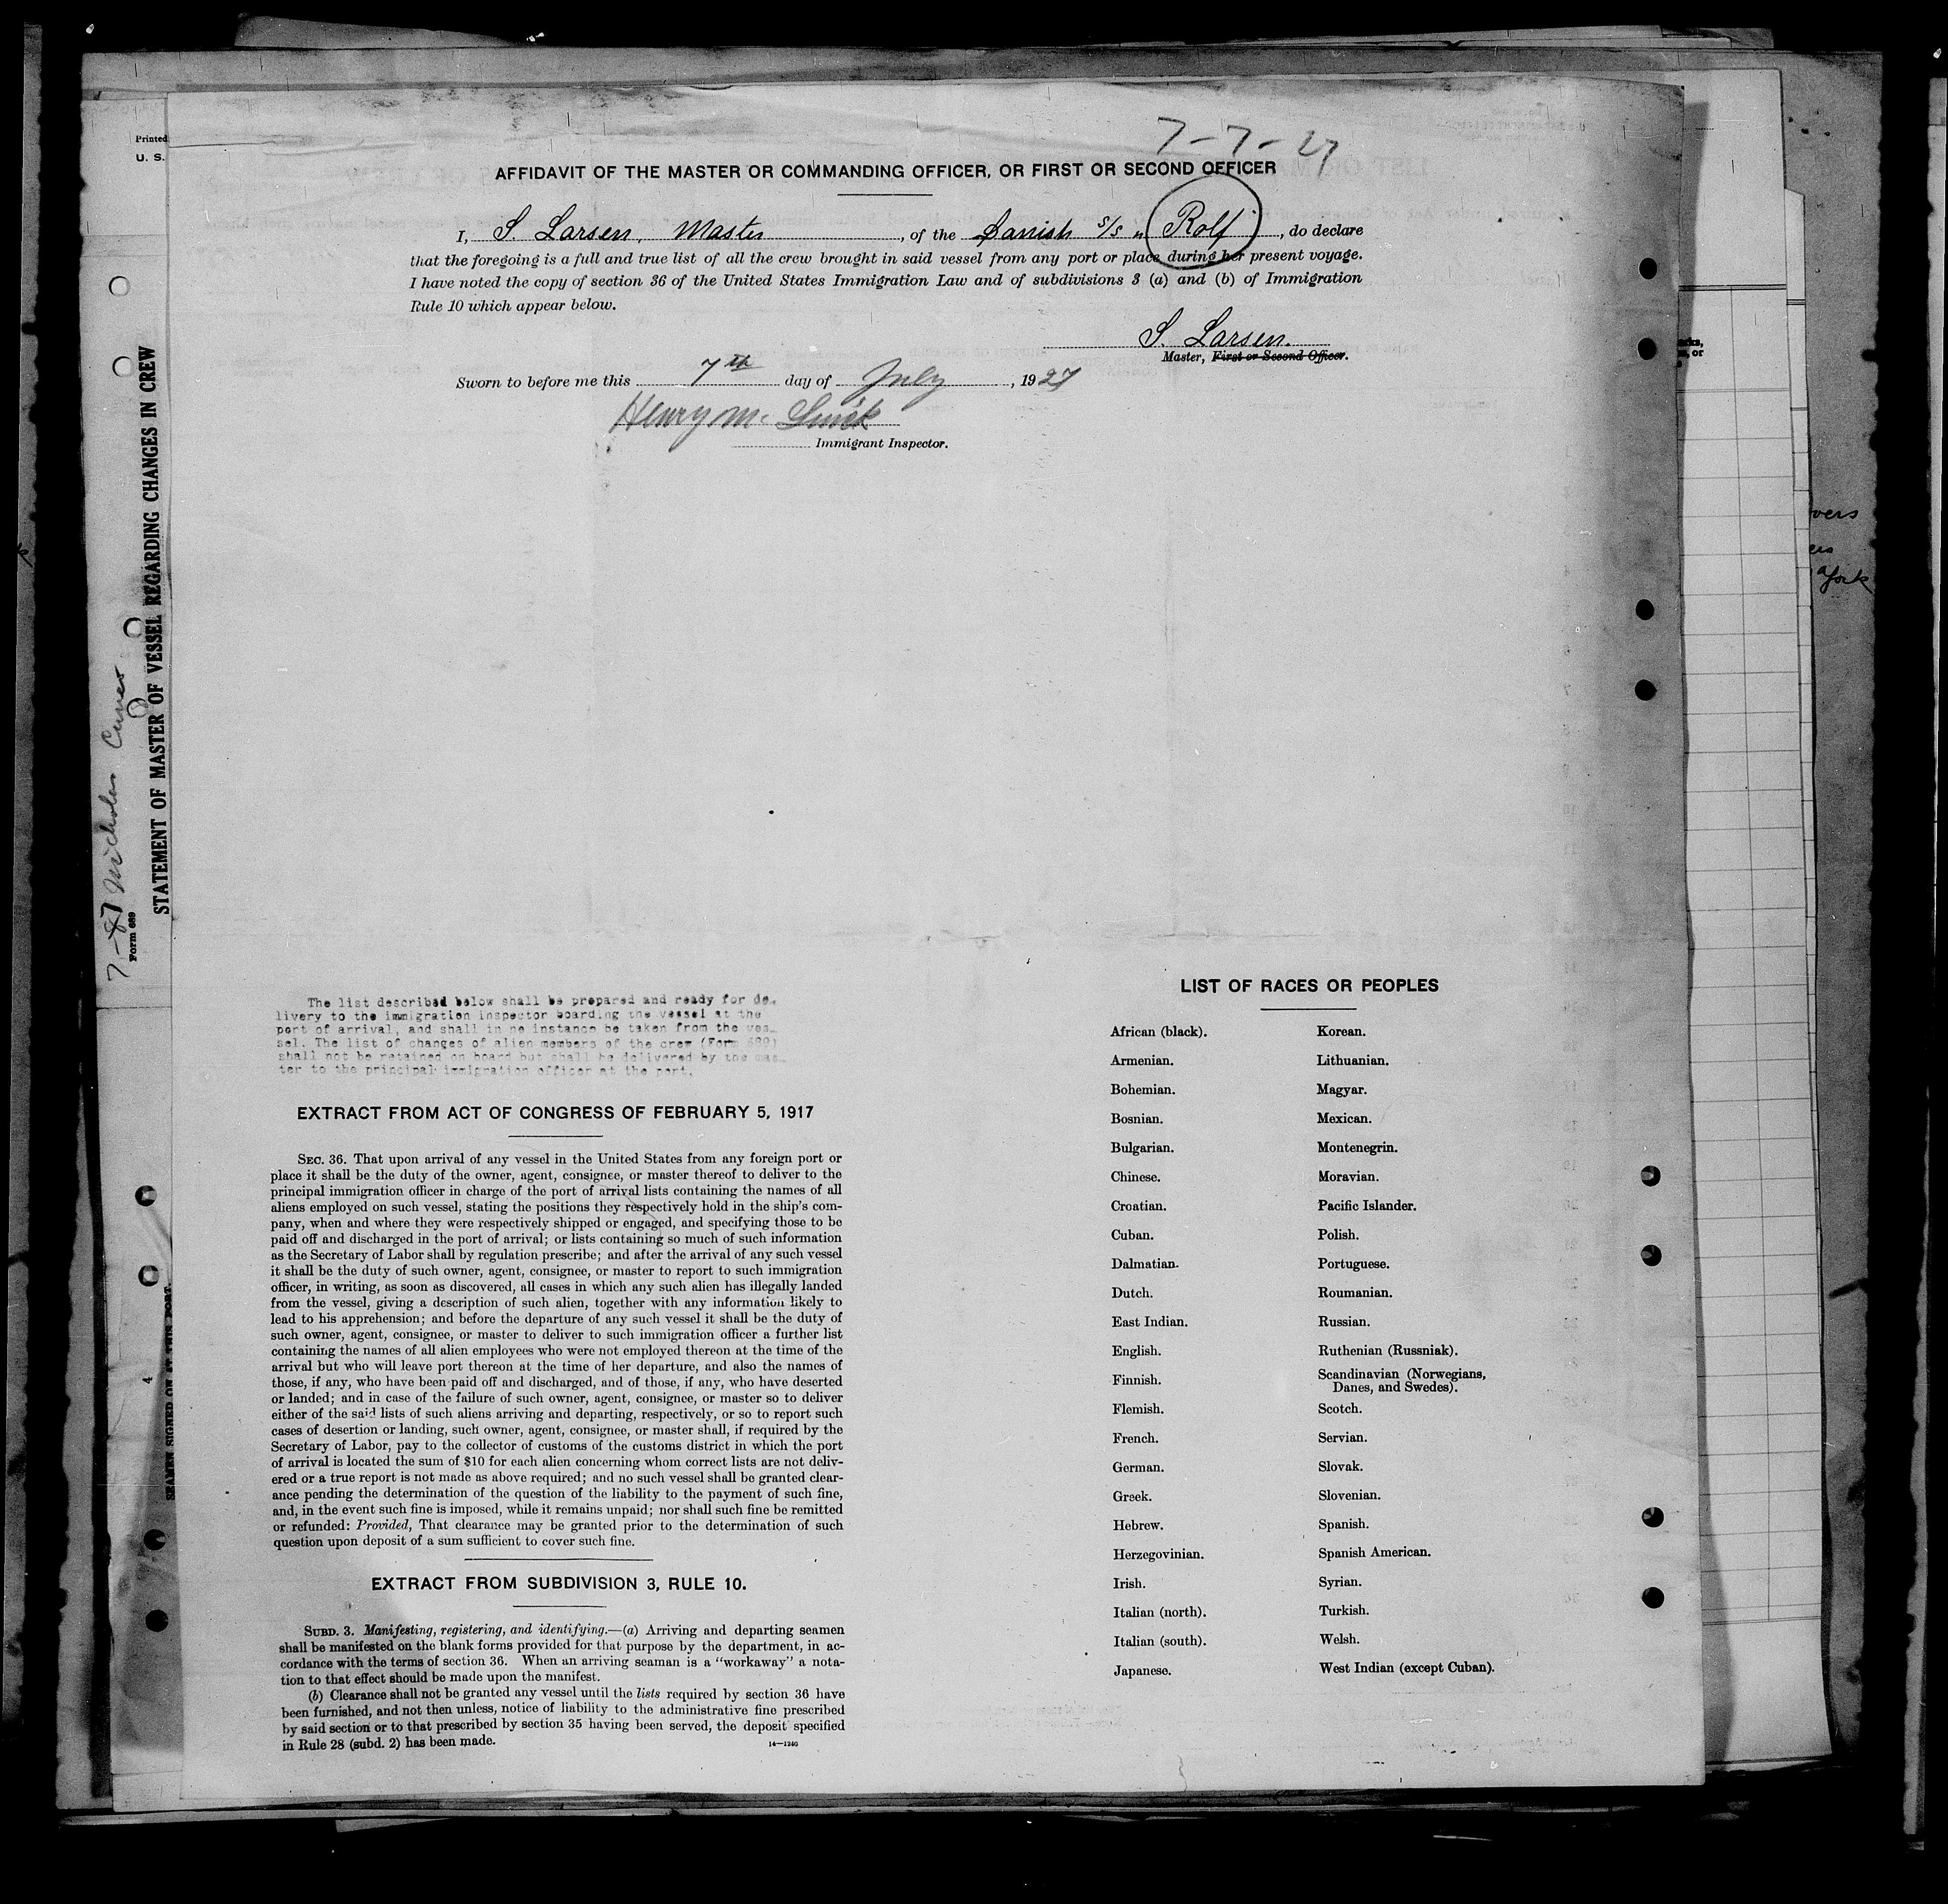 7-7-27
AFFIDAVIT OF THE MASTER OR COMMANDING OFFICER, OR FIRST OR SECOND OFFICER
I, S. Larsen, Master, of the Danish S/S "Rolf", do declare
that the foregoing is a full and true list of all the crew brought in said vessel from any port or place during her present voyage.
I have noted the copy of section 36 of the United States Immigration Law and of subdivisions 3 (a) and (b) of Immigration
Rule 10 which appear below.
S. Larsen.
Master, First or Second Officer.
Sworn to before me this 7th day of July, 1927
Henry M.
Immigrant Inspector.
The list described below shall be prepared and ready for de-
livery to the immigration inspector boarding the vessel at the
port of arrival, and shall in no instance be taken from the ves-
sel. The list of changes of alien members of the crew (Form 689)
shall not be retained on board but shall be delivered by the mas-
ter to the principal immigration officer at the port.
EXTRACT FROM ACT OF CONGRESS OF FEBRUARY 5, 1917
SEC. 36. That upon arrival of any vessel in the United States from any foreign port or
place it shall be the duty of the owner, agent, consignee, or master thereof to deliver to the
principal immigration officer in charge of the port of arrival lists containing the names of all
aliens employed on such vessel, stating the positions they respectively hold in the ship's com-
pany, when and where they were respectively shipped or engaged, and specifying those to be
paid off and discharged in the port of arrival; or lists containing so much of such information
as the Secretary of Labor shall by regulation prescribe; and after the arrival of any such vessel
it shall be the duty of such owner, agent, consignee, or master to report to such immigration
officer, in writing, as soon as discovered, all cases in which any such alien has illegally landed
from the vessel, giving a description of such alien, together with any information likely to
lead to his apprehension; and before the departure of any such vessel it shall be the duty of
such owner, agent, consignee, or master to deliver to such immigration officer a further list
containing the names of all alien employees who were not employed thereon at the time of the
arrival but who will leave port thereon at the time of her departure, and also the names of
those, if any, who have been paid off and discharged, and of those, if any, who have deserted
or landed; and in case of the failure of such owner, agent, consignee, or master so to deliver
either of the said lists of such aliens arriving and departing, respectively, or so to report such
cases of desertion or landing, such owner, agent, consignee, or master shall, if required by the
Secretary of Labor, pay to the collector of customs of the customs district in which the port
of arrival is located the sum of $10 for each alien concerning whom correct lists are not deliv-
ered or a true report is not made as above required; and no such vessel shall be granted clear-
ance pending the determination of the question of the liability to the payment of such fine,
and, in the event such fine is imposed, while it remains unpaid; nor shall such fine be remitted
or refunded: Provided, That clearance may be granted prior to the determination of such
question upon deposit of a sum sufficient to cover such fine.
EXTRACT FROM SUBDIVISION 3, RULE 10.
SUBD. 3. Manifesting, registering, and identifying.—(a) Arriving and departing seamen
shall be manifested on the blank forms provided for that purpose by the department, in ac-
cordance with the terms of section 36. When an arriving seaman is a "workaway" a nota-
tion to that effect should be made upon the manifest.
(b) Clearance shall not be granted any vessel until the lists required by section 36 have
been furnished, and not then unless, notice of liability to the administrative fine prescribed
by said section or to that prescribed by section 35 having been served, the deposit specified
in Rule 28 (subd. 2) has been made.
14—1240
LIST OF RACES OR PEOPLES
African (black).
Armenian.
Bohemian.
Bosnian.
Bulgarian.
Chinese.
Croatian.
Cuban.
Dalmatian.
Dutch.
East Indian.
English.
Finnish.
Flemish.
French.
German.
Greek.
Hebrew.
Herzegovinian.
Irish.
Italian (north).
Italian (south).
Japanese.
Korean.
Lithuanian.
Magyar.
Mexican.
Montenegrin.
Moravian.
Pacific Islander.
Polish.
Portuguese.
Roumanian.
Russian.
Ruthenian (Russniak).
Scandinavian (Norwegians,
Danes, and Swedes).
Scotch.
Servian.
Slovak.
Slovenian.
Spanish.
Spanish American.
Syrian.
Turkish.
Welsh.
West Indian (except Cuban).
Printed
U. S.
STATEMENT OF MASTER OF VESSEL REGARDING CHANGES IN CREW
Form 689
Nicholas
4
SEAMEN SIGNED ON AT THIS PORT.
vers
ers
York